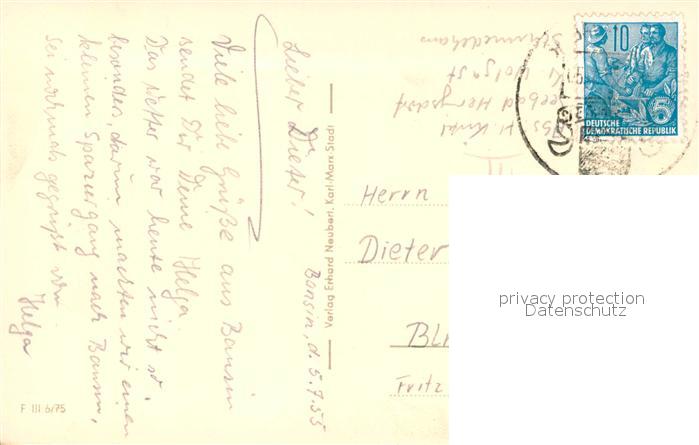 Bansin, d. 5.7.55
Lieber Dieter!
Viele liebe Grüße aus Bansin
sendet Dir Deine Helga
Das Wetter war heute nicht so
besonders, darum machten wir einen
kleinen Spaziergang nach Bansin,
Sei nochmals gegrüßt von
Helga
F III 6/75
Verlag Erhard Neubert, Karl-Marx-Stadt
Abs. H.
Seebad Heringsdorf
Kr. Wolgast
10
5
DEUTSCHE
DEMOKRATISCHE REPUBLIK
Herrn
Dieter
Fritz
privacy protection
Datenschutz